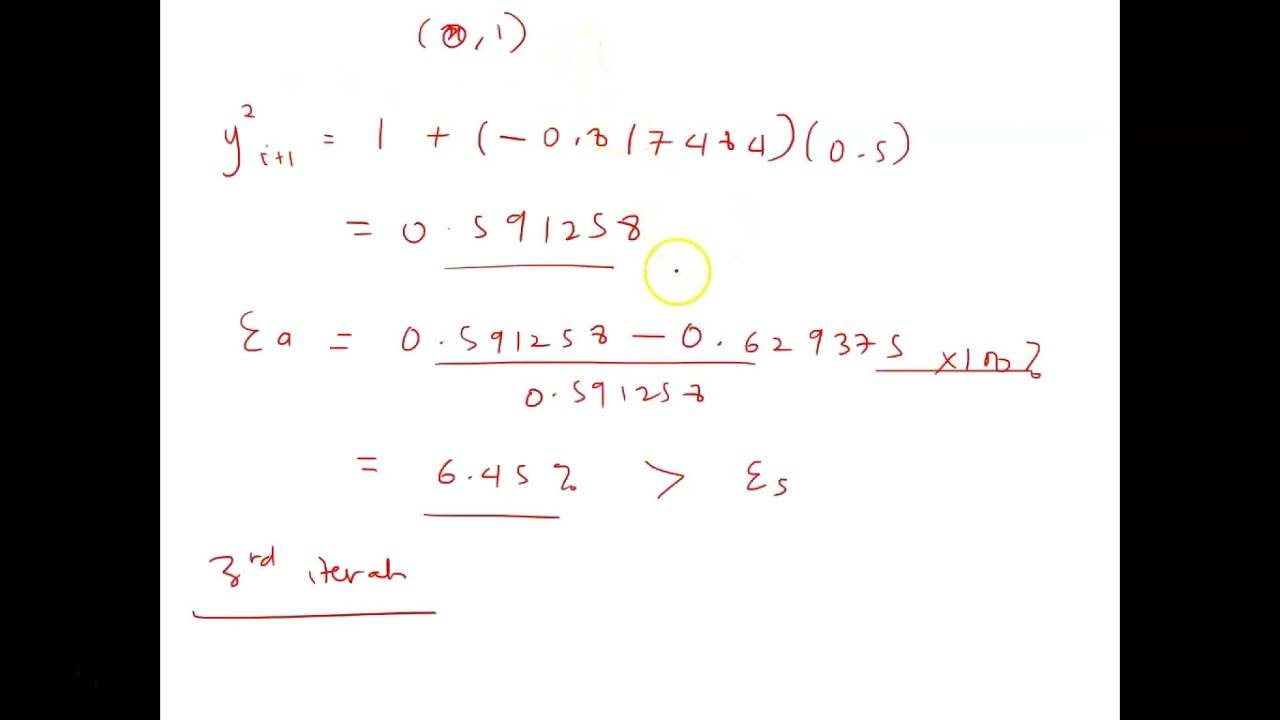 (0, 1)
y²ᵢ₊₁ = 1 + (-0.817484)(0.5)
= 0.591258
εa = 0.591258 - 0.629375 ×100%
0.591258
= 6.45% > εs
3rd iterah